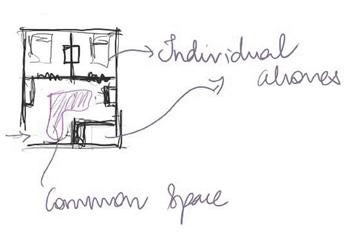 Individual
alcoves
Common Space